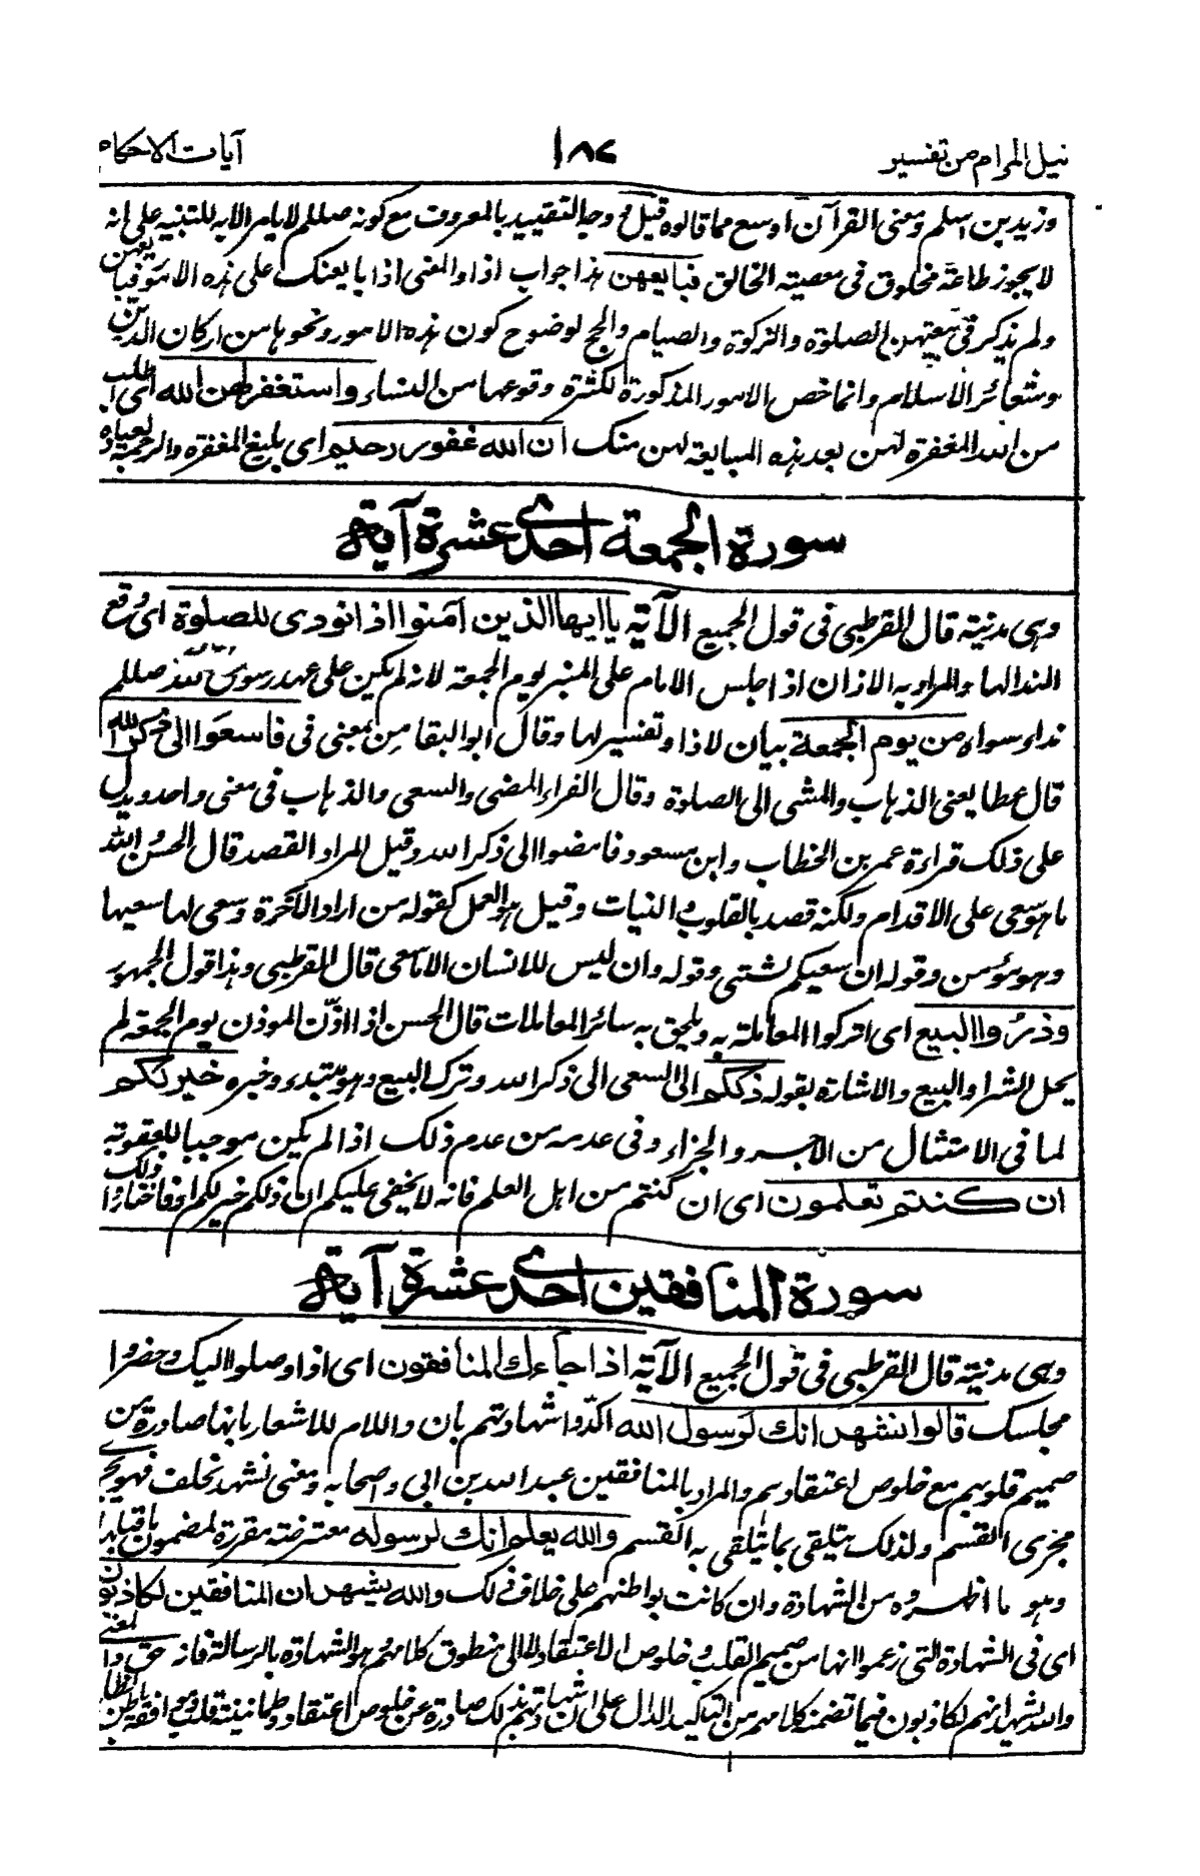 نيل المرام من تفسير ١٨٢ آيات الاحكام
وزيد بن اسلم ومعنى القرآن اوسع مما قالوه قيل ووجه التقييد بالمعروف مع كونه صللم لا يامر الا به للتنبيه على انه
لا يجوز طاعة مخلوق فى معصية الخالق فبايعهن هذا جواب اذا والمعنى اذا بايعنك على هذه الامور فبايعهن
ولم يذكر فى بيعتهن الصلوة والزكوة والصيام والحج لوضوح كون هذه الامور ونحوها من اركان الدين
وشعائر الاسلام وانما خص الامور المذكورة لكثرة وقوعها من النساء واستغفر لهن الله اى اطلب
من الله المغفرة لهن بعد هذه المبايعة لهن منك ان الله غفور رحيم اى بليغ المغفرة والرحمة لعباده
سورة الجمعة احدى عشرة آية
وهى مدنية قال القرطبى فى قول الجميع الآية يا ايها الذين آمنوا اذا نودى للصلوة اى وقع
النداء لها والمراد به الاذان اذا جلس الامام على المنبر يوم الجمعة لانه لم يكن على عهد رسول الله صللم
نداء سواه من يوم الجمعة بيان لاذا وتفسير لها وقال ابو البقا من بمعنى فى فاسعوا الى ذكر الله
قال عطا يعنى الذهاب والمشى الى الصلوة وقال الفراء المضى والسعى والذهاب فى معنى واحد ويدل
على ذلك قراءة عمر بن الخطاب وابن مسعود فامضوا الى ذكر الله وقيل المراد القصد قال الحسن والله
ما هو سعى على الاقدام ولكنه قصد بالقلوب والنيات وقيل هو العمل كقوله من اراد الآخرة وسعى لها سعيها
وهو مؤمن وقوله ان سعيكم لشتى وقوله وان ليس للانسان الا ما سعى قال القرطبى وهذا قول الجمهور
وذروا البيع اى اتركوا المعاملة به ويلحق به سائر المعاملات قال الحسن اذا اذن الموذن يوم الجمعة لم
يحل الشراء والبيع والاشارة بقوله ذلكم الى السعى الى ذكر الله وترك البيع وهو مبتدء وخبره خير لكم
لما فى الامتثال من الاجر والجزاء وفى عدمه من عدم ذلك اذا لم يكن موجبا للعقوبة
ان كنتم تعلمون اى ان كنتم من اهل العلم فانه لا يخفى عليكم ان ذلكم خير لكم
سورة المنافقين احدى عشرة آية
وهى مدنية قال القرطبى فى قول الجميع الآية اذا جاءك المنافقون اى اذا وصلوا اليك وحضروا
مجلسك قالوا نشهد انك لرسول الله اكدوا شهادتهم بان واللام للاشعار بانها صادرة من
صميم قلوبهم مع خلوص اعتقادهم والمراد بالمنافقين عبد الله بن ابى واصحابه ومعنى نشهد نحلف فهو يجرى
مجرى القسم ولذلك يتلقى بما يتلقى به القسم والله يعلم انك لرسوله معترضة مقررة لمضمون ما قبلها
وهو ما اظهروه من الشهادة وان كانت بواطنهم على خلاف ذلك والله يشهد ان المنافقين لكاذبون
اى فى الشهادة التى زعموا انها من صميم القلب وخلوص الاعتقاد لا الى منطوق كلامهم وهو الشهادة بالرسالة فانه حق والمعنى
والله يشهد انهم لكاذبون فيما تضمنه كلامهم من التاكيد الدال على ان شهادتهم بذلك صادرة عن خلوص اعتقاد وطمانينة قلب وموافقة باطن